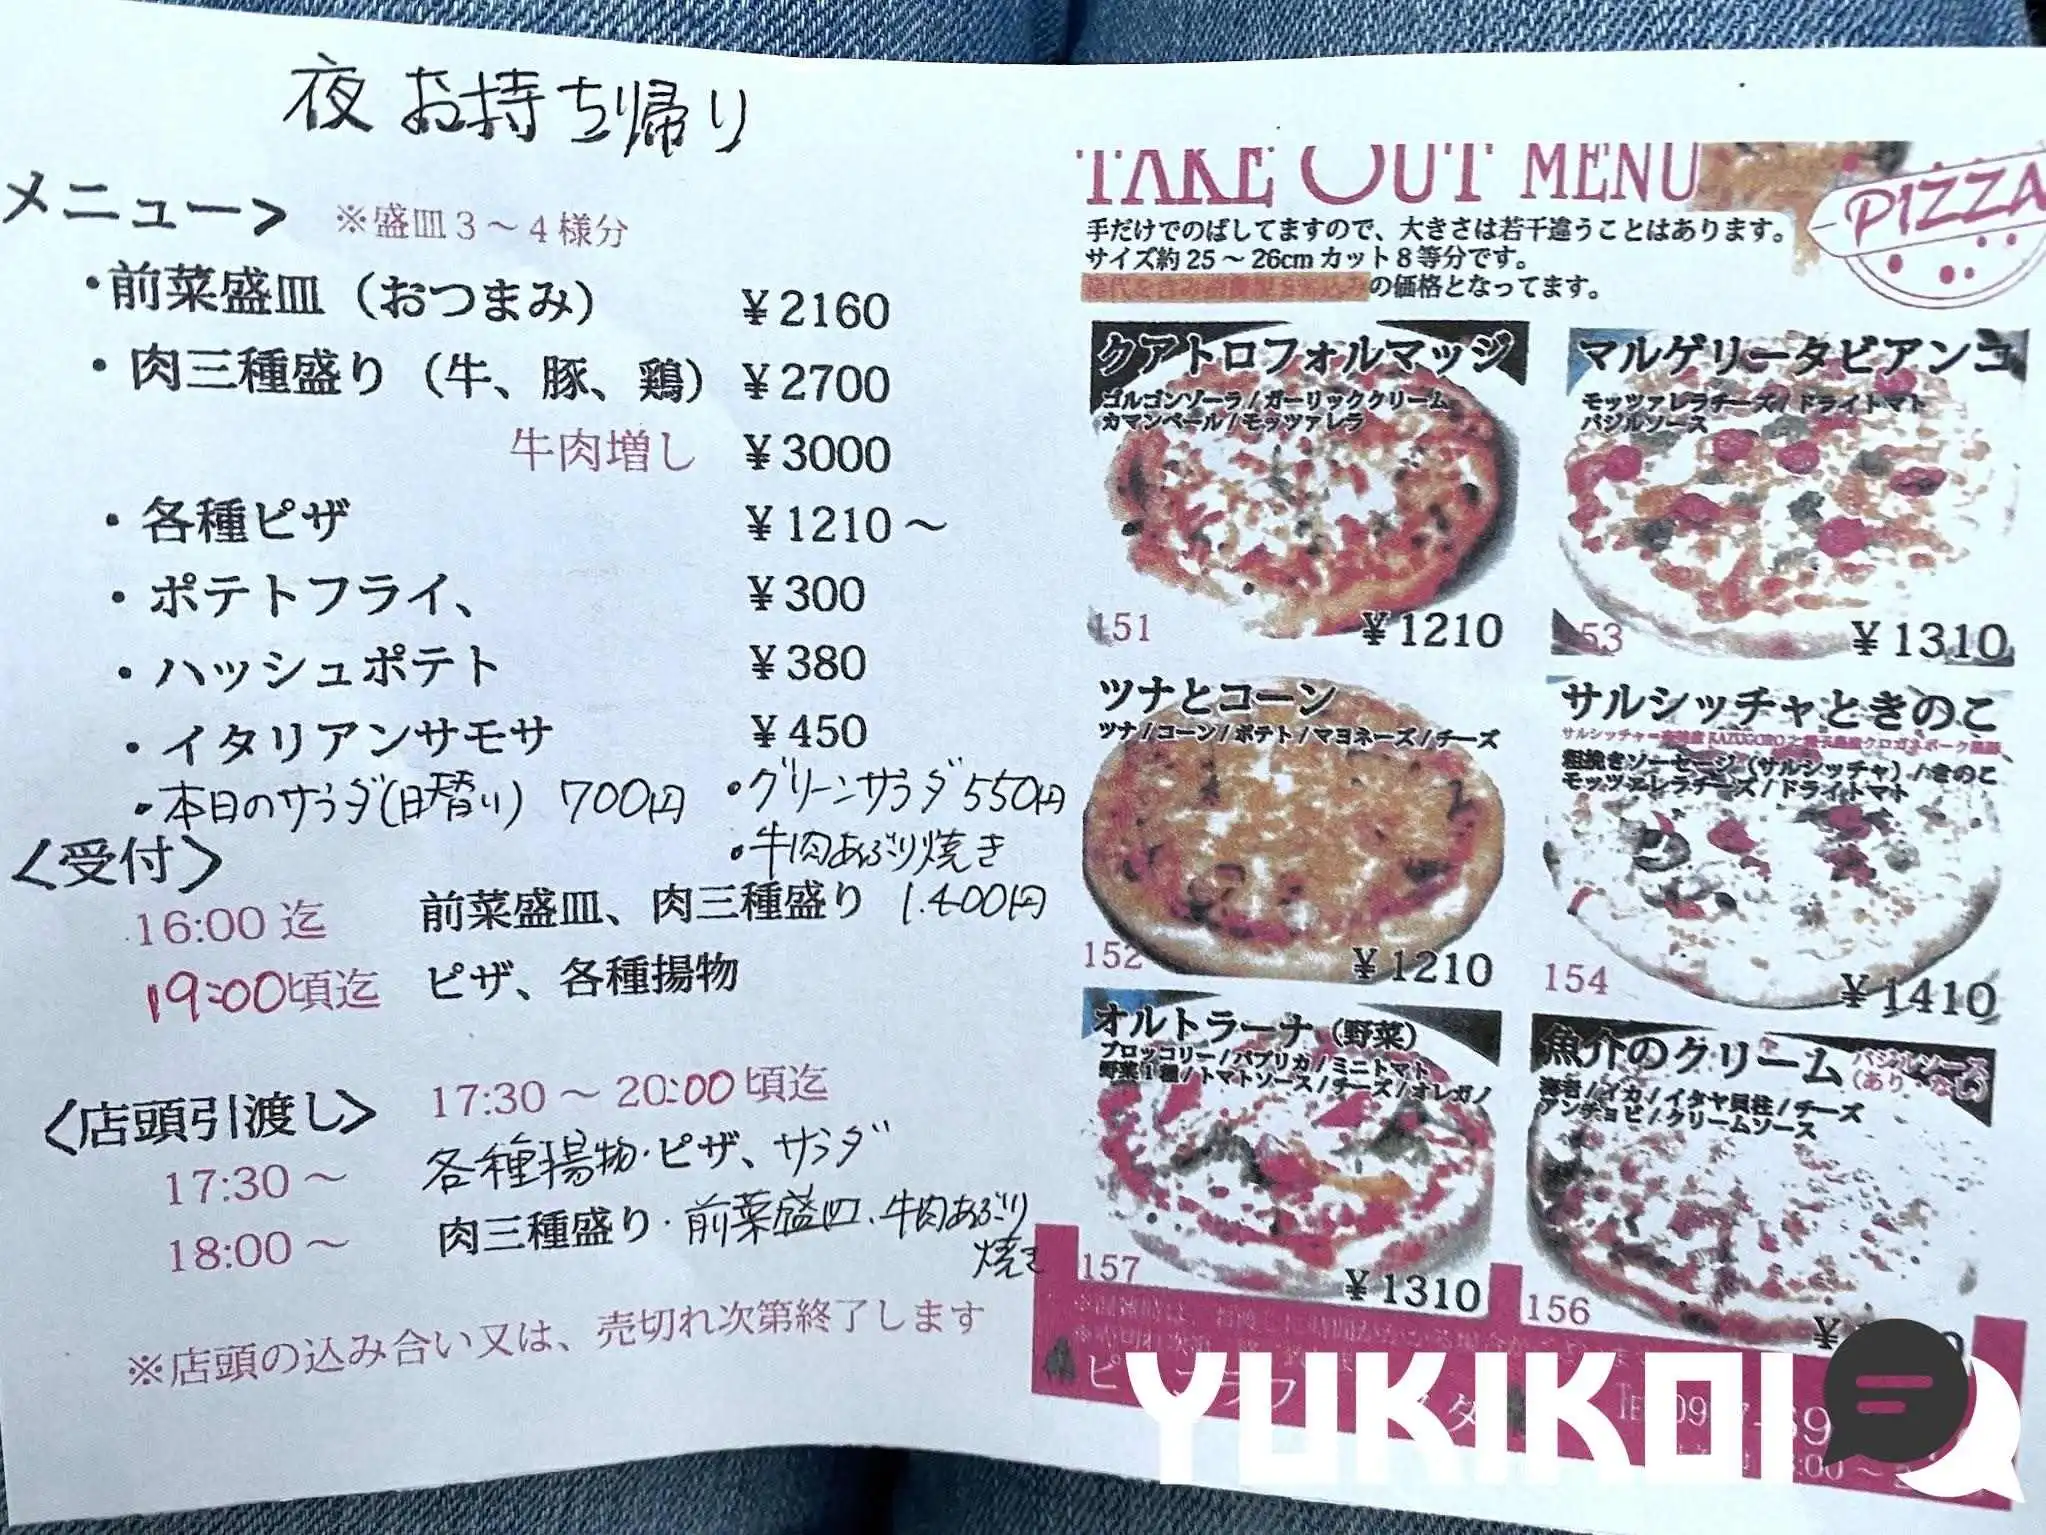 夜お持ち帰り
メニュー> ※盛皿3～4様分
・前菜盛皿（おつまみ） ￥2160
・肉三種盛り（牛、豚、鶏） ￥2700
牛肉増し ￥3000
・各種ピザ ￥1210～
・ポテトフライ、 ￥300
・ハッシュポテト ￥380
・イタリアンサモサ ￥450
・本日のサラダ(日替り) 700円 ・グリーンサラダ 550円
・牛肉あぶり焼き
1.400円
<受付>
16:00 迄 前菜盛皿、肉三種盛り
19:00頃迄 ピザ、各種揚物
<店頭引渡し> 17:30～20:00頃迄
17:30～ 各種揚物・ピザ、サラダ
18:00～ 肉三種盛り・前菜盛皿、牛肉あぶり
焼き
※店頭の込み合い又は、売切れ次第終了します
TAKE OUT MENU
PIZZA
手だけでのばしてますので、大きさは若干違うことはあります。
サイズ約25～26cmカット8等分です。
の価格となってます。
クアトロフォルマッジ
ゴルゴンゾーラ/ガーリッククリーム
カマンベール/モッツァレラ
151 ￥1210
マルゲリータビアンコ
モッツァレラチーズ/ドライトマト
バジルソース
53 ￥1310
ツナとコーン
ツナ/コーン/ポテト/マヨネーズ/チーズ
152 ￥1210
サルシッチャときのこ
粗挽きソーセージ（サルシッチャ）/きのこ
モッツァレラチーズ/ドライトマト
154 ￥1410
オルトラーナ（野菜）
ブロッコリー/パプリカ/ミニトマト
野菜1種/トマトソース/チーズ/オレガノ
157 ￥1310
魚介のクリーム バジルソース
(あり なし)
海老/イカ/イタヤ貝柱/チーズ
アンチョビ/クリームソース
156
YUKIKOI